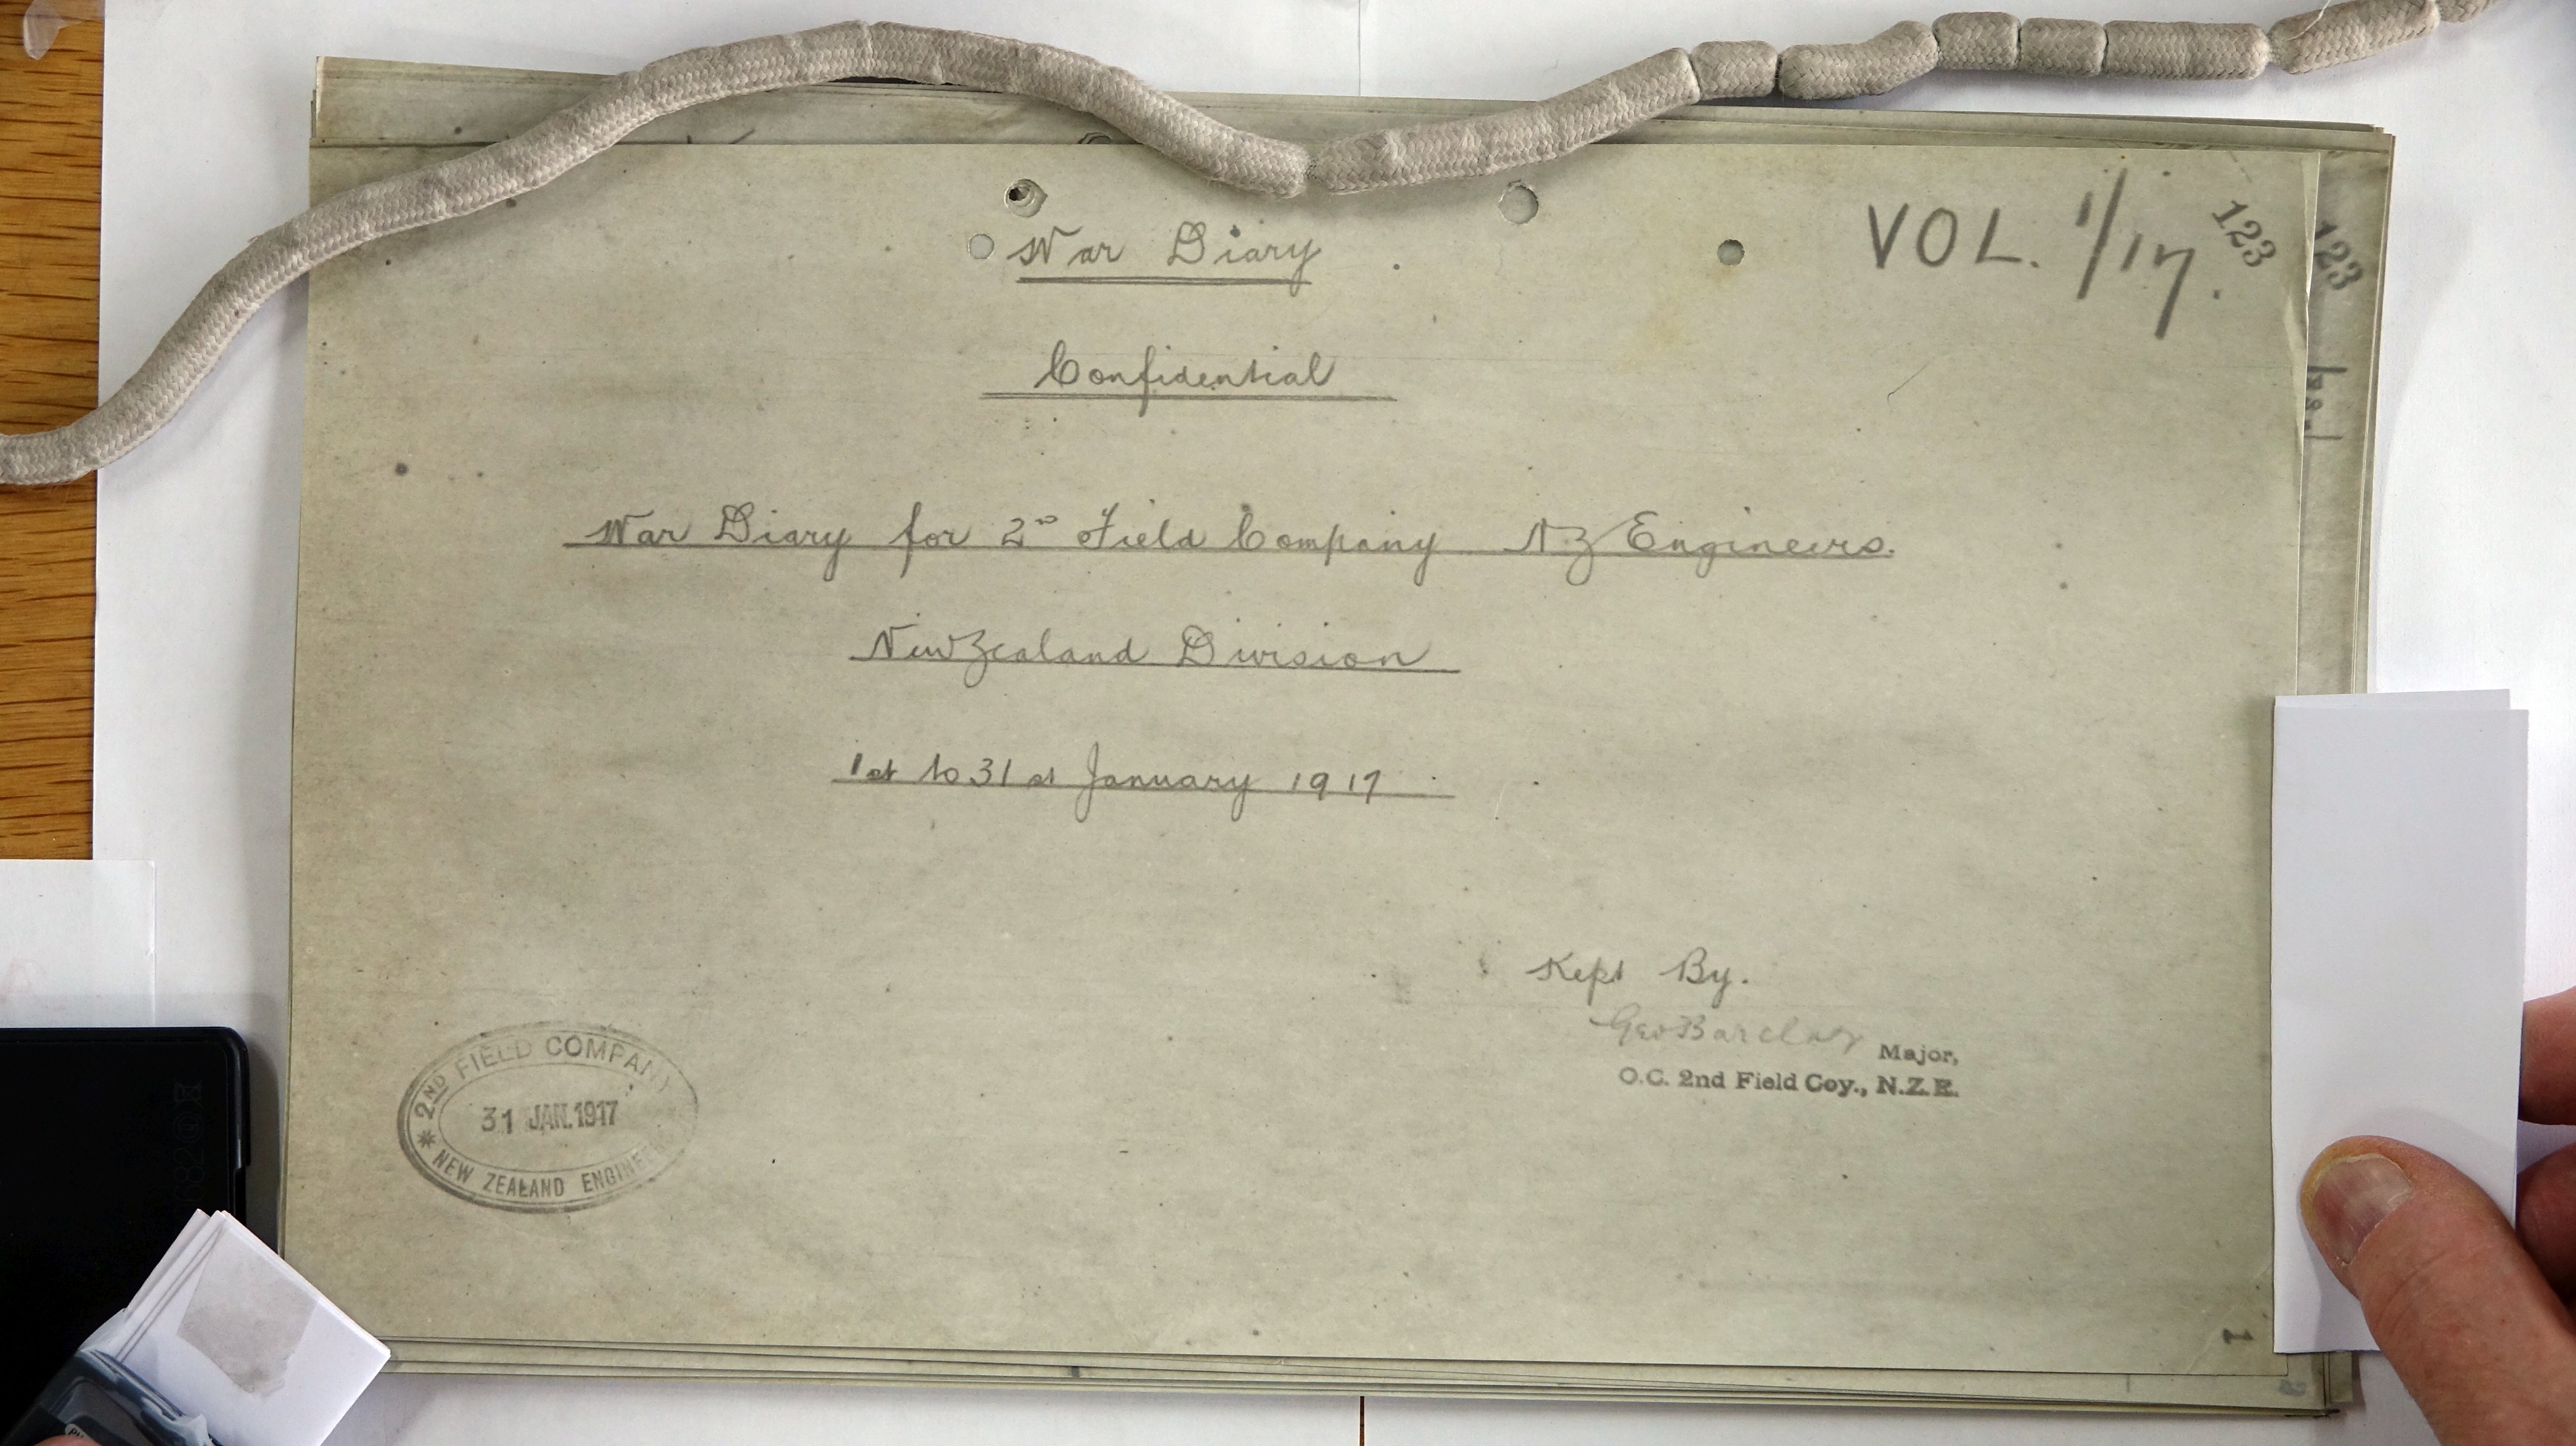 VOL. 1/17.
123
123
War Diary
Confidential
War Diary for 2nd Field Company NZ Engineers.
New Zealand Division
1st to 31st January 1917
Kept By.
Geo Barclay
Major,
O.C. 2nd Field Coy., N.Z.E.
2ND FIELD COMPANY
31 JAN. 1917
NEW ZEALAND ENGINEE
1